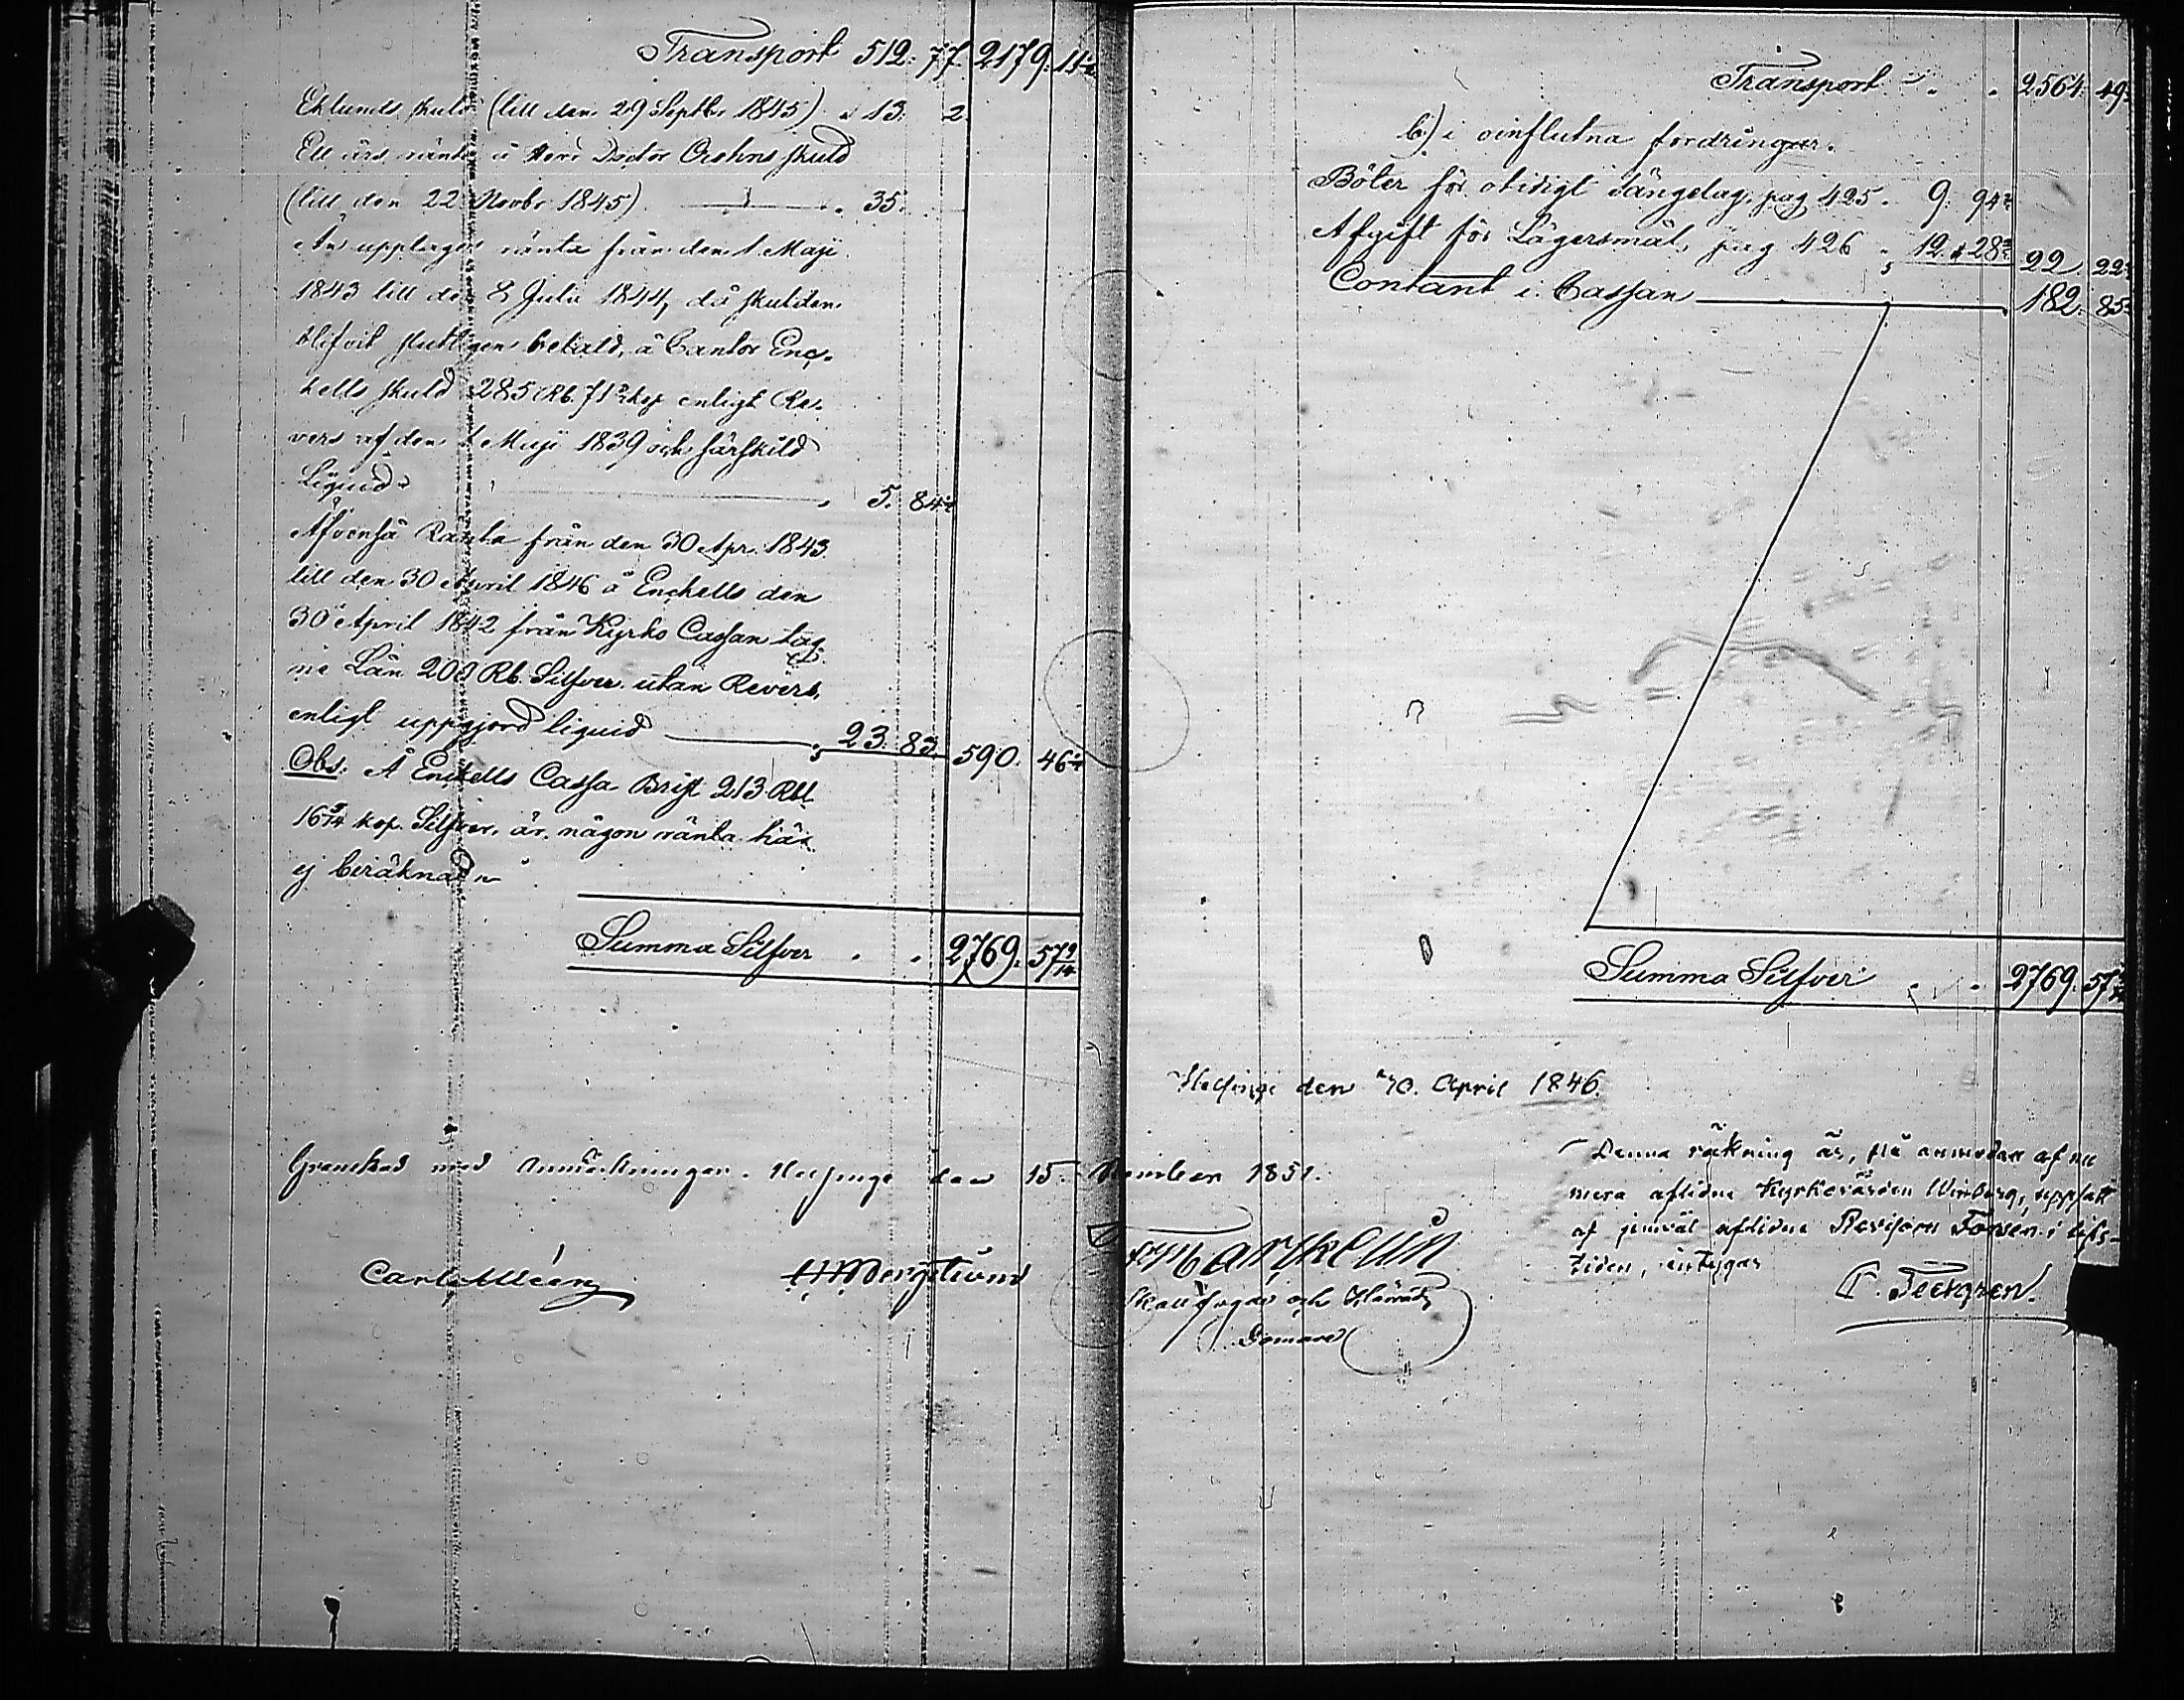 Transport 512. 77. 2179. 11
Eklunds skuld (till den 29 Septbr 1845) " 13. 2.
Ett års ränta å Herr Doctor Orehns skuld
(till den 22 Novbr 1845) " 35.
An upplagd ränta från den 1 Maji
1843 till den 8 Julii 1844, då skulden
blifvit slutligen betald, å Cantor Enc-
kells skuld 285 Rb. 71 kop enligt Re-
vers af den 1 Maji 1839 och särskild
Liquid " 5. 84
Äfvenså Ranta från den 30 Apr. 1843
till den 30 April 1846 å Enckells den
30 April 1842 från Kyrko Cassan tag-
ne Lån 200 Rb. Silfver utan Revers,
enligt uppgjord liquid " 23. 83. 590. 46
Obs: Å Enckells Cassa Brist 213 Rbl
16 kop. Silfver, är någon ränta här
ej beräknad
Summa Silfver . . 2769. 57 9/14
Granskad med Anmärkningar. Helsinge den 15
Carl
Bergslund
Transport . . 2564. 49
b.) i oinflutna fordringar.
Böter för otidigt Sängelag, pag 425. 9. 94
Afgift för Lägersmål, pag 426 " 12. 28 22. 22
Contant i Cassan 182. 85
Summa Silfver . . 2769. 57
Helsinge den 30. April 1846.
1851.
Denna räkning är, på anmodan af nu
mera aflidne Kyrkovärden Winberg, uppsatt
af jemväl aflidne Revisorn Forsen i lifs-
tiden, intygar
och Härads
Domare